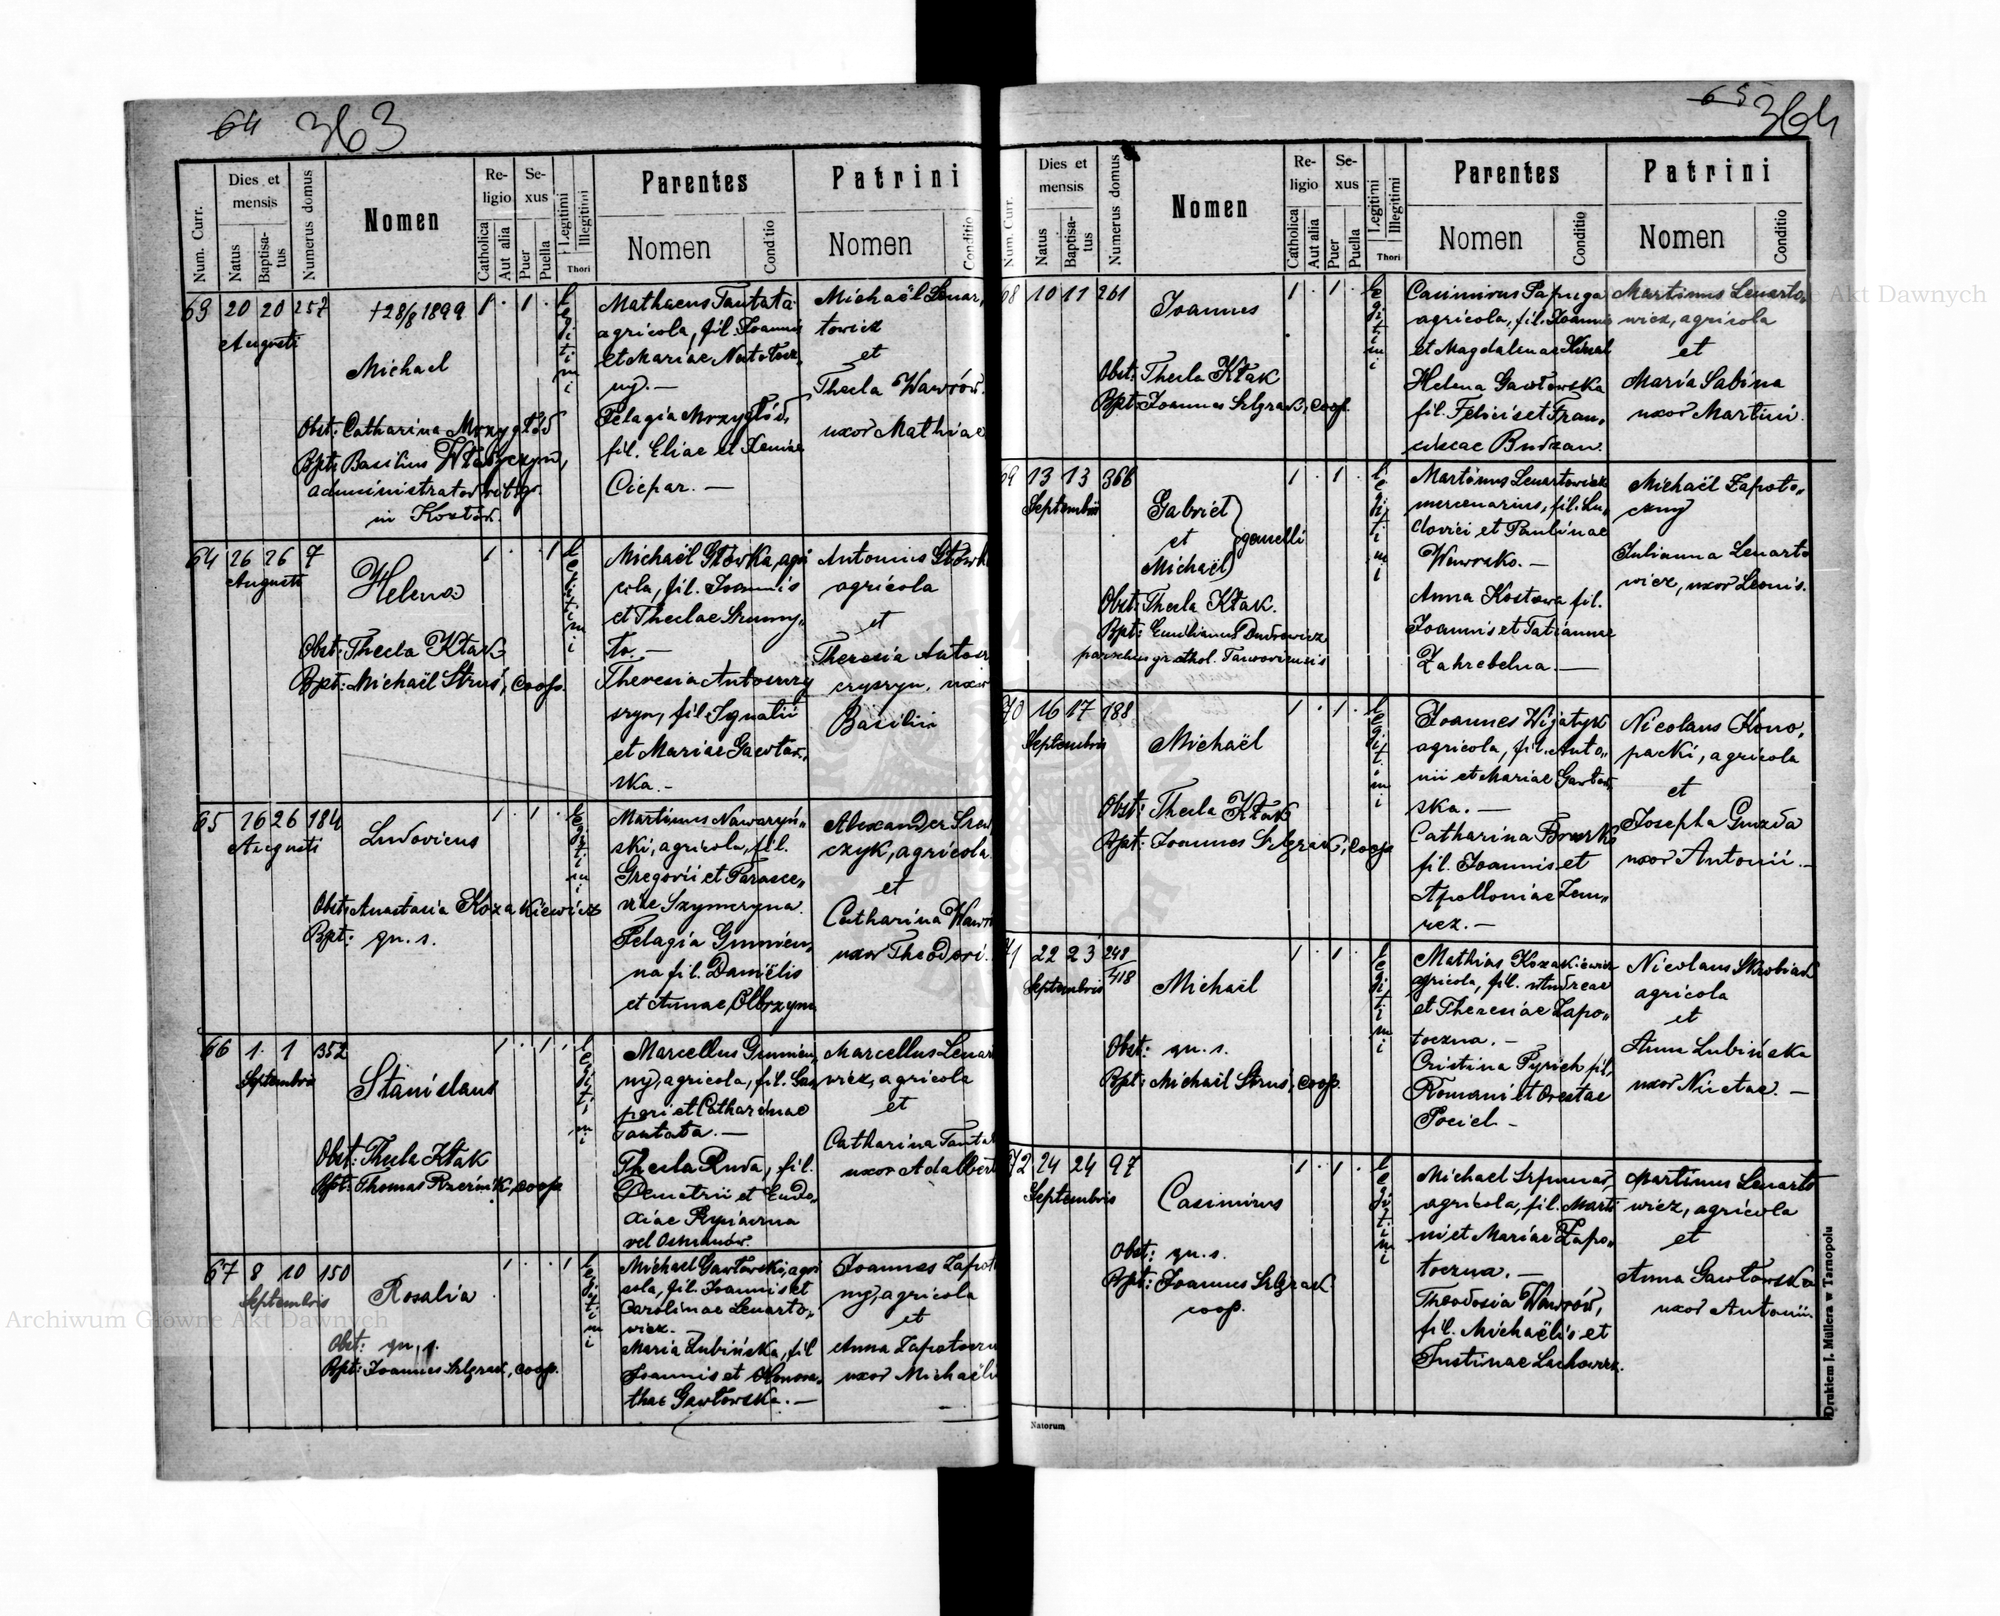 64 363
Num. Curr.
Dies et mensis
Natus
Baptisatus
Numerus domus
Nomen
Religio
Catholica
Aut alia
Sexus
Puer
Puella
Legitimi
Illegitimi
Thori
Parentes
Nomen
Conditio
Patrini
Nomen
Conditio
63 20 20 257
Augusti
†28/8 1899
Michael
Obst: Catharina Mrzygłód
Bpt: Basilius
administrator
in
1 . 1 .
legitimi
Mathaeus Tantata
agricola, fil. Joannis
et Mariae
ny. —
Pelagia Mrzygłód,
fil. Eliae et Xeniae
Ciepar. —
Michaël Lenar
towicz
et
Thecla Wawrów.
uxor Mathiae
64 26 26 7
Augusti
Helena
Obst: Thecla Kłak
Bpt: Michaël Struś, coop.
1 . . 1
legitimi
Michaël Głowka, agri
cola, fil. Joannis
et Theclae
to. —
Theresia Antoszczy
szyn, fil. Ignatii
et Mariae Gawłow„
ska. –
Antonius Głowk
agricola
et
Theresia Antosz
czyszyn, uxor
Basilii
65 16 26 184
Augusti
Ludovicus
Obst: Anastasia Kozakiewicz
Bpt: qu. s.
1 . 1 .
legitimi
Martinus Nawaryń„
ski, agricola, fil.
Gregorii et Parasce„
vae Szymczyna.
Pelagia Gmmien„
na fil. Daniëlis
et Annae Olbrzym
Alexander
czyk, agricola
et
Catharina Wawr
uxor Theodori.
66 1. 1 352
Septembris
Stanislaus
Obst: Thecla Kłak
Bpt: Thomas Rzeźnik, coop.
1 . 1 .
legitimi
Marcellus
ny, agricola, fil. Gas
pari et Catharinae
Tantata. —
Thecla Ruda, fil.
Demetrii et Eudo„
xiae
vel
Marcellus Lenar
wicz, agricola
et
Catharina Tanta
uxor Adalberti
67 8 10 150
Septembris
Rosalia
Obst: qu. s.
Bpt: Joannes, coop.
1 . . 1
legitimi
Michael Gawłowski, agri
cola, fil. Joannis et
Carolinae Lenarto„
wicz. —
Maria Lubińska, fil
Joannis et Honora„
thae Gawłowska. —
Joannes Zapot
ny, agricola
et
Anna Zapotocz
uxor Michaëlis
65 364
Num. Curr.
Dies et mensis
Natus
Baptisatus
Numerus domus
Nomen
Religio
Catholica
Aut alia
Sexus
Puer
Puella
Legitimi
Illegitimi
Thori
Parentes
Nomen
Conditio
Patrini
Nomen
Conditio
68 10 11 261
Joannes
Obst: Thecla Kłak
Bpt: Joannes, coop.
1 . 1 .
legitimi
Casimirus Papuga
agricola, fil. Joannis
et Magdalenae
Helena Gawłowska
fil. Felicis et Fran„
ciscae Budzan.
Martinus Lenarto„
wicz, agricola
et
Maria Sabina
uxor Martini.
69 13 13 366
Septembris
Gabriel
et gemelli
Michaël
Obst: Thecla Kłak.
Bpt: Emilianus
parochus gr. cathol.
1 . 1 .
legitimi
Martinus Lenartowicz
mercenarius, fil. Lu„
dovici et Paulinae
. —
Anna Kostowa fil.
Joannis et Tatiannae
Zahrebelna. —
Michaël Zapoto„
czny
Julianna Lenarto
wicz, uxor Leonis.
70 16 17 188
Septembris
Michaël
Obst: Thecla Kłak
Bpt: Joannes, coop
1 . 1 .
legitimi
Joannes Wijatyk
agricola, fil. Anto„
nii et Mariae Gawłow„
ska. —
Catharina
fil. Joannis et
Apolloniae Zem„
rez. —
Nicolaus Kono„
packi, agricola
et
Josepha Gnizda
uxor Antonii. —
71 22 23 248/418
Septembris
Michaël
Obst: qu. s.
Bpt: Michaël Struś, coop.
1 . 1 .
legitimi
Mathias Kozakiewicz
agricola, fil. Andreae
et Theresiae Zapo„
toczna. –
Cristina Pyrich fil.
Romani et Orestae
Pociel –
Nicolaus Skrobiach
agricola
et
Anna Lubińska
uxor Nicetae. —
72 24 24 97
Septembris
Casimirus
Obst: qu. s.
Bpt: Joannes
coop.
1 . 1 .
legitimi
Michael
agricola, fil. Marti
ni et Mariae Zapo„
toczna. —
Theodosia Wawrów,
fil. Michaëlis et
Justinae
Martinus Lenarto
wicz, agricola
et
Anna Gawłowska
uxor Antonii.
Natorum
Drukiem J. Müllera w Tarnopolu
Archiwum Główne Akt Dawnych
Akt Dawnych